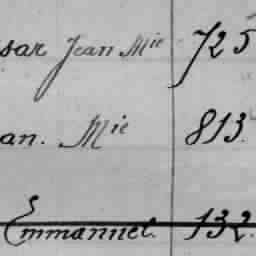 sar Jean Mie 725
an. Mie 813.
Emmanuel. 132.